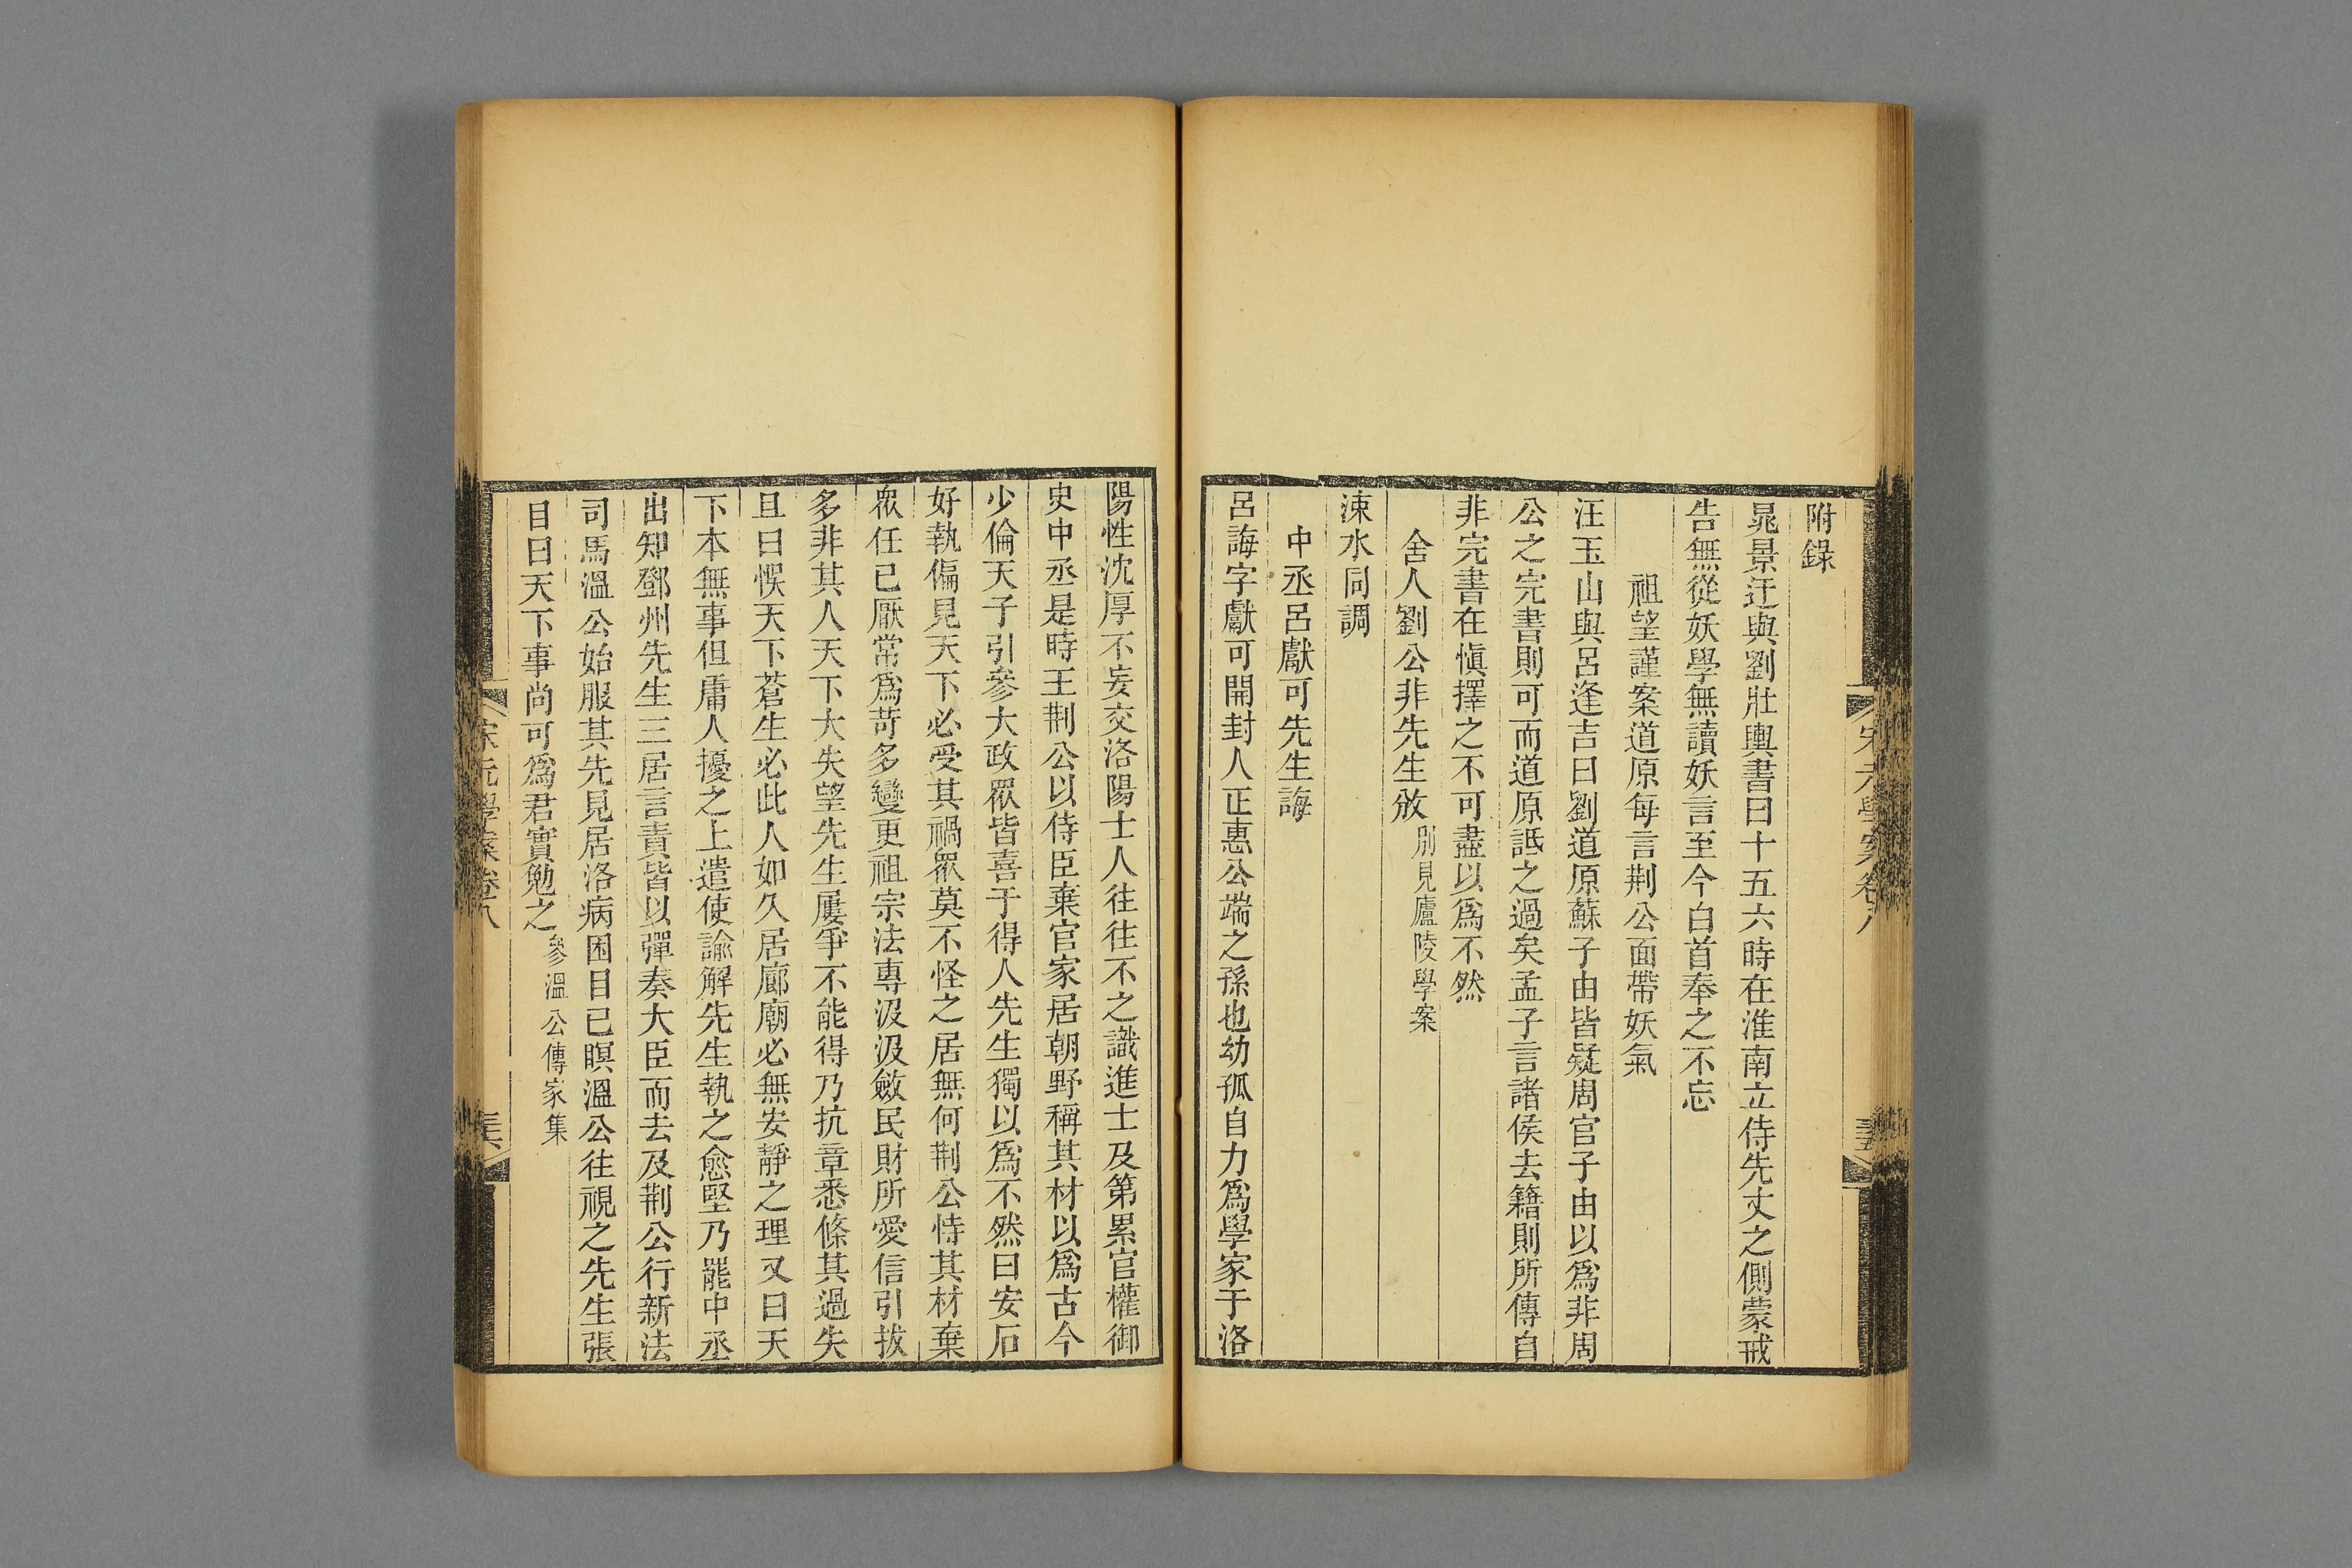 附錄
晁景迂與劉壯輿書曰十五六時在淮南立侍先丈之側蒙戒
告無從妖學無讀妖言至今白首奉之不忘
祖望謹案道原每言荆公面帶妖氣
汪玉山與呂逢吉曰劉道原蘇子由皆疑周官子由以爲非周
公之完書則可而道原詆之過矣孟子言諸侯去籍則所傳自
非完書在愼擇之不可盡以爲不然
舍人劉公非先生攽別見廬陵學案
涑水同調
中丞呂獻可先生誨
呂誨字獻可開封人正惠公端之孫也幼孤自力爲學家于洛
陽性沈厚不妄交洛陽士人往往不之識進士及第累官權御
史中丞是時王荆公以侍臣棄官家居朝野稱其材以爲古今
少倫天子引參大政眾皆喜于得人先生獨以爲不然曰安石
好執偏見天下必受其禍眾莫不怪之居無何荆公恃其材棄
眾任已厭常爲苛多變更祖宗法專汲汲斂民財所愛信引拔
多非其人天下大失望先生屢爭不能得乃抗章悉條其過失
且曰悞天下蒼生必此人如久居廊廟必無安靜之理又曰天
下本無事但庸人擾之上遣使諭解先生執之愈堅乃罷中丞
出知鄧州先生三居言責皆以彈奏大臣而去及荆公行新法
司馬溫公始服其先見居洛病困目已瞑溫公往視之先生張
目曰天下事尚可爲君實勉之參溫公傳家集
宋元學案卷八